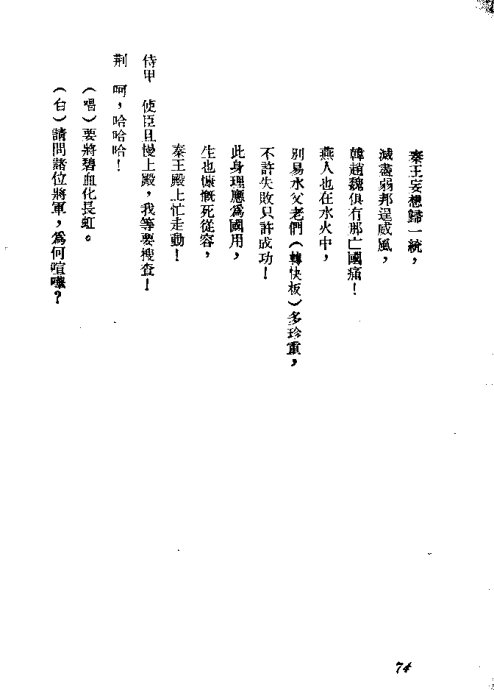 秦王妄想歸一統，
滅盡弱邦逞威風，
韓趙魏俱有那亡國痛！
燕人也在水火中，
別易水父老們（轉快板）多珍重，
不許失敗只許成功！
此身理應爲國用，
生也慷慨死從容，
秦王殿上忙走動！
侍甲　使臣且慢上殿，我等要搜查！
荆　呵，哈哈哈！
（唱）要將碧血化長虹。
（白）請問諸位將軍，爲何喧嘩？
74